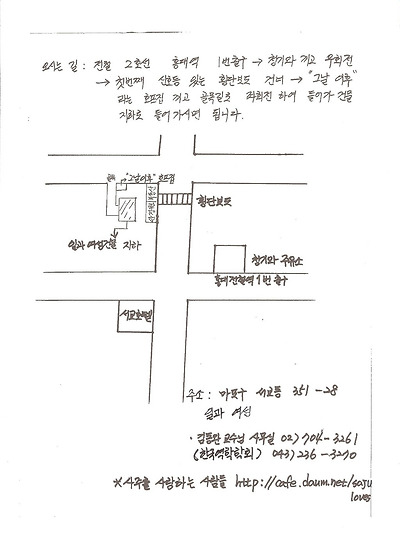 오시는 길 : 전철 2호선 홍대역 1번출구 → 청기와 끼고 우회전
→ 첫번째 신호등 있는 횡단보도 건너 → "그날 이후"
라는 호프집 끼고 골목길로 좌회전 하여 들어가 건물
지하로 들어가시면 됩니다.
"그날이후" 호프집
횡단보도
일과 여성건물 지하
청기와 주유소
홍대전철역 1번 출구
서교호텔
주소 : 마포구 서교동 351-28
일과 여성
· 김동완 교수님 사무실 02) 704-3261
(한국역학학회) 043) 236-3270
※ 사주를 사랑하는 사람들 http://cafe.daum.net/saju
loves